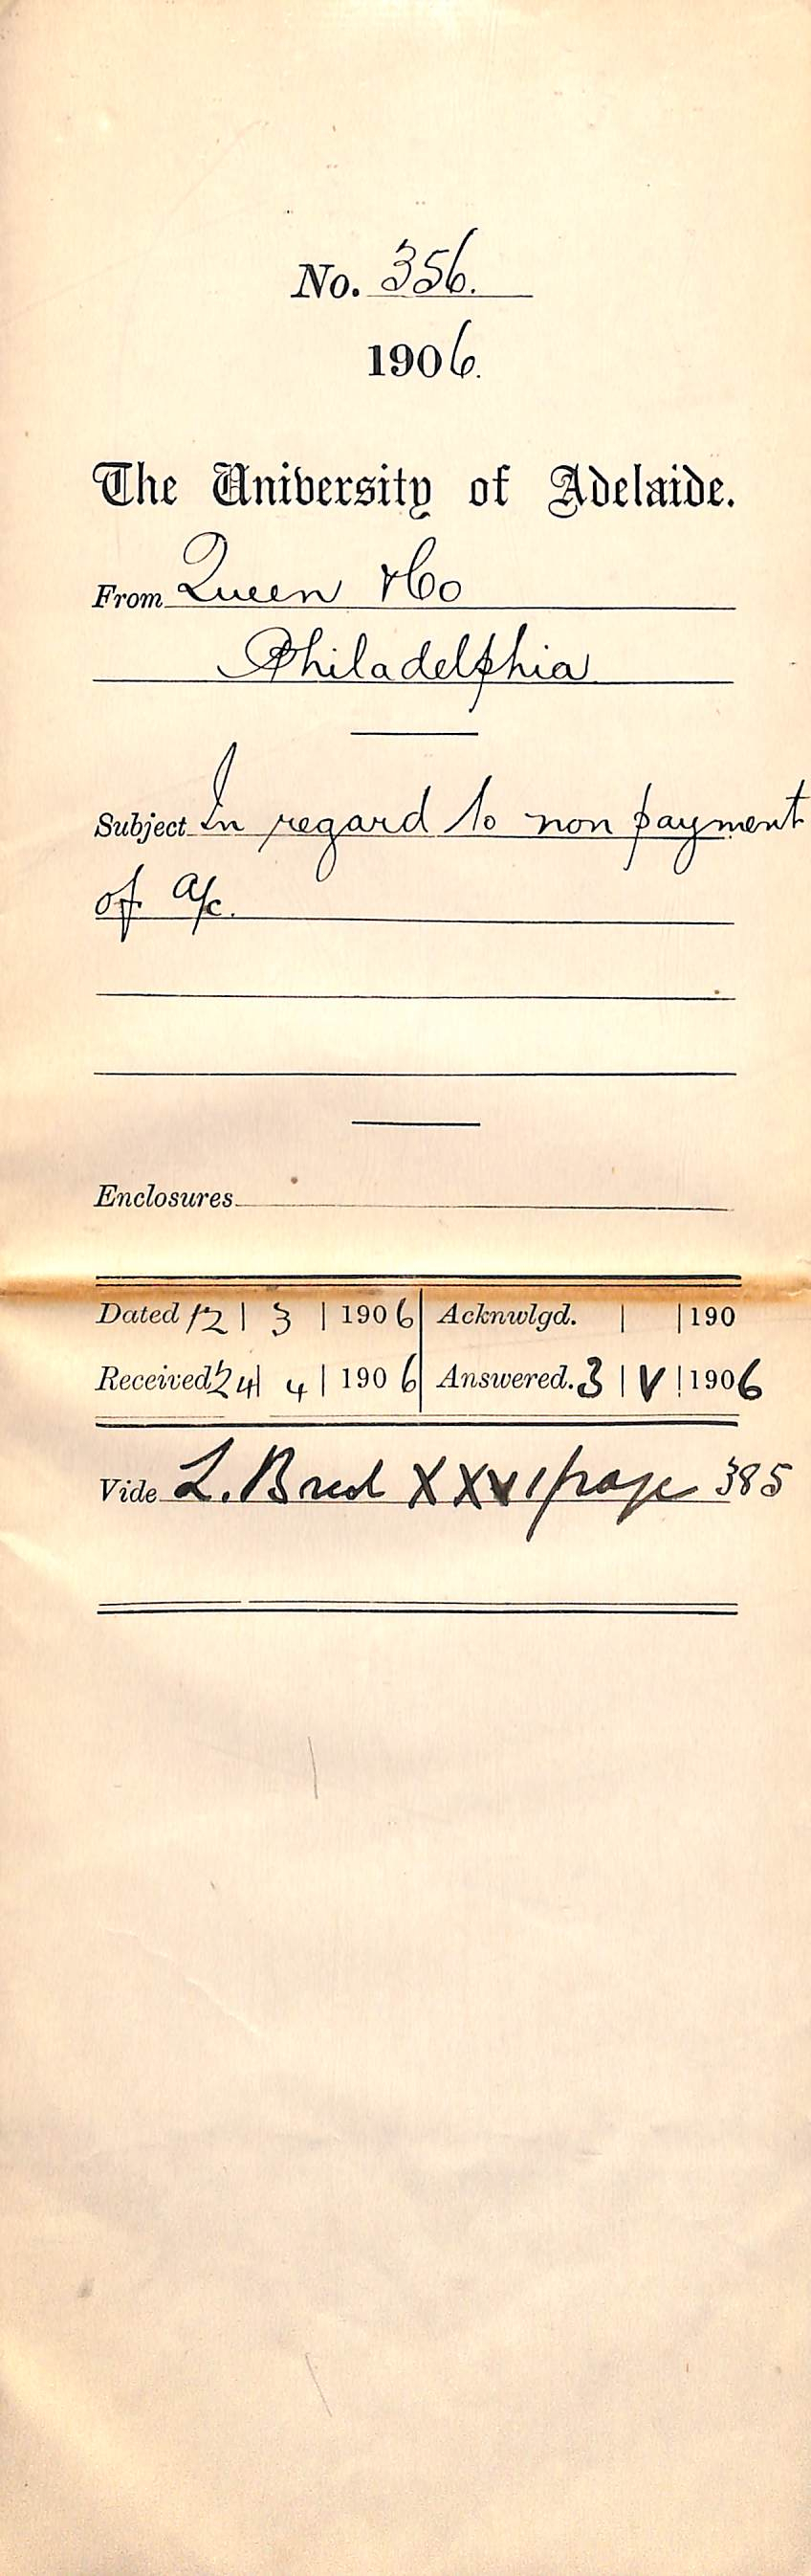 No. 356.
1906.
The University of Adelaide.
From Queen & Co
Philadelphia
Subject In regard to non payment
of a/c.
Enclosures
Dated 12 | 3 | 1906 Acknwlgd. | | 190
Received 24 | 4 | 1906 Answered. 3 | V | 1906
Vide L. XXVI page 385